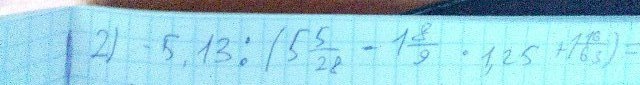 2) -5,13 : (5 5/28 - 1 8/9 · 1,25 + 1 16/63) =